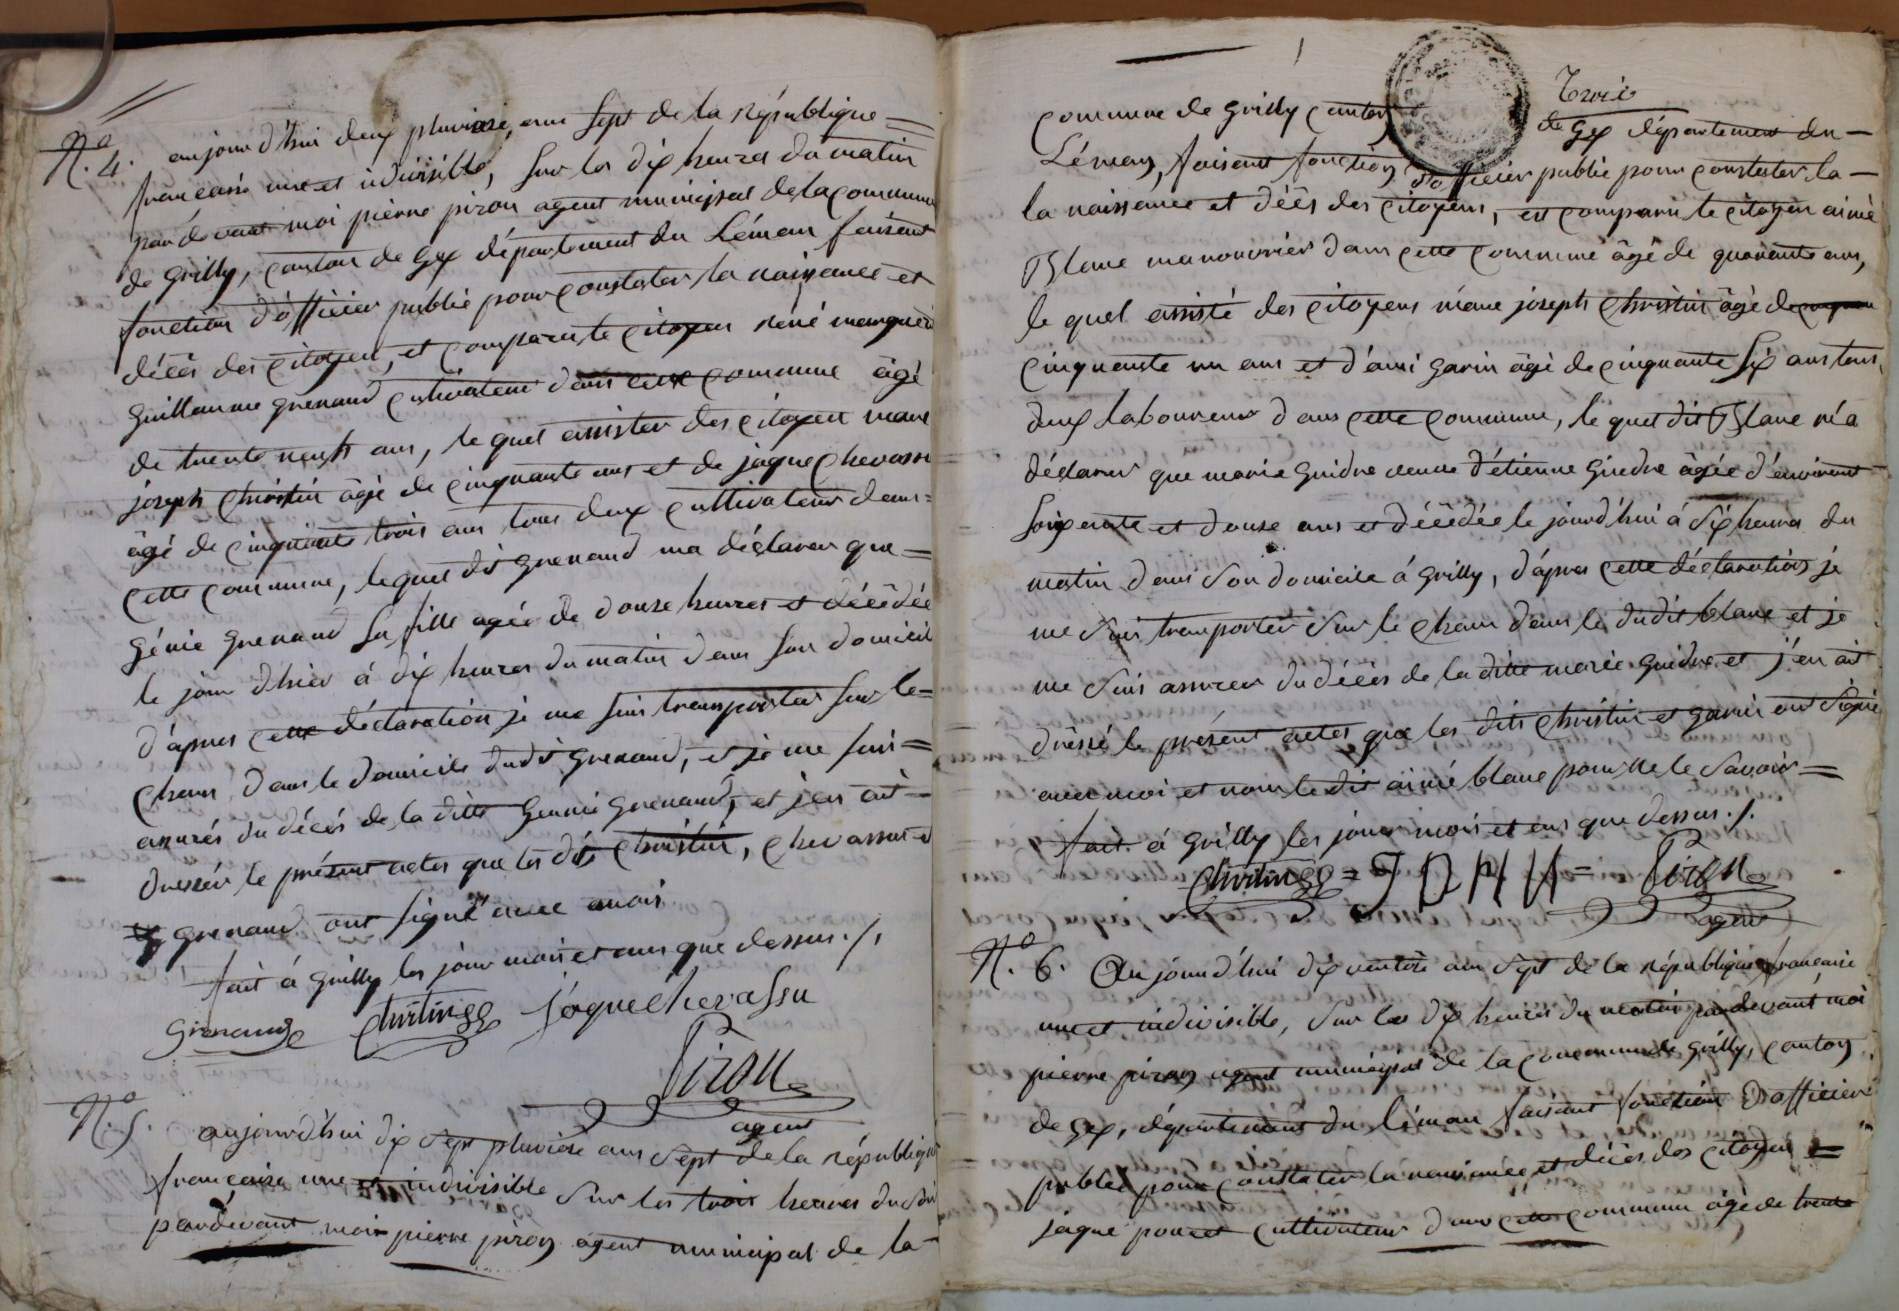 N.º 4. aujourd'hui deux pluviose, ans sept de la république =
française une et indivisible, sur les dix heures du matin
pardevant moi pierre piron agent municipal de la commune
de Grilly, canton de Gex département du Léman faisant
fonction d'officier public pour constater la naissance et
décès des citoyen, et comparu le citoyen réné
Guillaume grenaud cultivateur dans cette commune âgé
de trente neuf ans, le quel assister des citoyen marc
joseph Christin âgé de cinquante ans et de jaque Chevassu
âgé de cinquante trois ans tous deux cultivateur dans =
cette commune, lequel dit grenaud ma déclarer que =
génie grenaud sa fille agée de douse heures et décédée
le jour d'hier à dix heures du matin dans son domicil
d'apres cette déclaration je me suis transporter sur le =
cham dans le domicile dudit grenaud, et je me suis =
assurés du décés de la ditte Genie grenaud, et j'en ait -
dressér le présent actes que les dis Christin, chevassu et
grenaud ont signé avec mois
fait à Grilly les jour mois et ans que dessus ./.
Grenaud Christin jáque chevassu
Piron
agent
N.º 5. aujourd'hui dix sept pluviose ans sept de la républiqu
française une et indivisible sur les trois heures du soir
pardevant moi pierre piron agent municipal de la -
Trois
commune de Grilly canton de Gex département du -
Léman, faisant fonction d'officier public pour constater la -
la naissance et décès des citoyens, est comparu le citoyen aimé
Blanc manouvrier dans cette commune âgé de quarante ans,
le quel assisté des citoyens marc joseph Christin âgé de
cinquante un ans et d'ami garin âgé de cinquante six ans tous
deux laboureur dans cette commune, le quel dit Blanc m'a
déclarer que marie Guidre veuve d'étienne Giedre âgée d'environt
soixente et douse ans et décédée le jourd'hui à six heures du
matin dans son domicile à Grilly, d'apres cette déclaration je
me suis transporter sur le cham dans le dudit blanc et je
me suis assurer du décès de la ditte marie guidre et j'en ait
dressé le présent actes que les dits Christin et garin ont signé
avec moi et non le dit aimé blanc pour ne le savoir =
fait à Grilly les jour mois et ans que dessus ./.
Christin = Piron
agent
N.º 6. Au jourd'hui dix ventose ans sept de la république française
une et indivisible, sur les dix heures du matin pardevant moi
pierre piron agent municipal de la commune de Grilly, canton
de Gex, département du Léman faisant fonction d'officier
public pour constater la naissance et décès des citoyen =
jaque poncet cultivateur dans cette commune âgé de trente